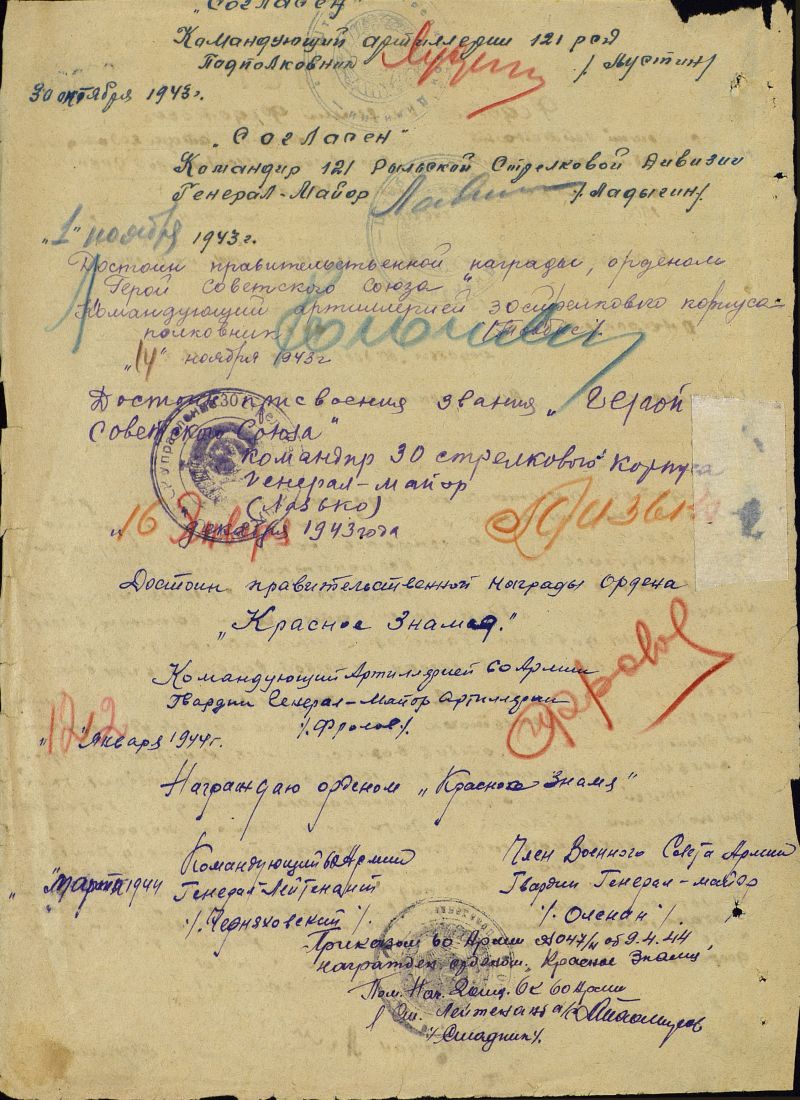 „Согласен"
Командующий артиллерии 121 рсд
Подполковник /Лустин/
30 октября 1943г.
„Согласен"
Командир 121 Рыльской Стрелковой Дивизии
Генерал-Майор /Ладыгин/
„1" ноября 1943г.
Достоин правительственной награды, орденом
„Герой Советского Союза"
Командующий артиллерией 30 стрелкового корпуса-
полковник
„14" ноября 1943г
Достоин присвоения звания „Герой
Советского Союза"
Командир 30 стрелкового корпуса
Генерал-майор
(Лазько)
„16 Января декабря 1943 года
Достоин правительственной награды ордена
„Красное Знамя."
Командующий Артиллерией 60 Армии
Гвардии Генерал-Майор артиллерии
/.Фролов/.
„ " Января 1944г.
Награждаю орденом „Красное Знамя"
Командующий 60 Армии
Генерал-Лейтенант
/.Черняховский/.
„ " Марта 1944
Член Военного Совета Армии
Гвардии Генерал-майор
/. Оленин/.
Приказом 60 Армии №047/н от 9.4.44
награжден орденом „Красное Знамя"
Пом. Нач. 2 отд. ОК 60 Армии
Ст. Лейтенант а/с
/.Сладник/.